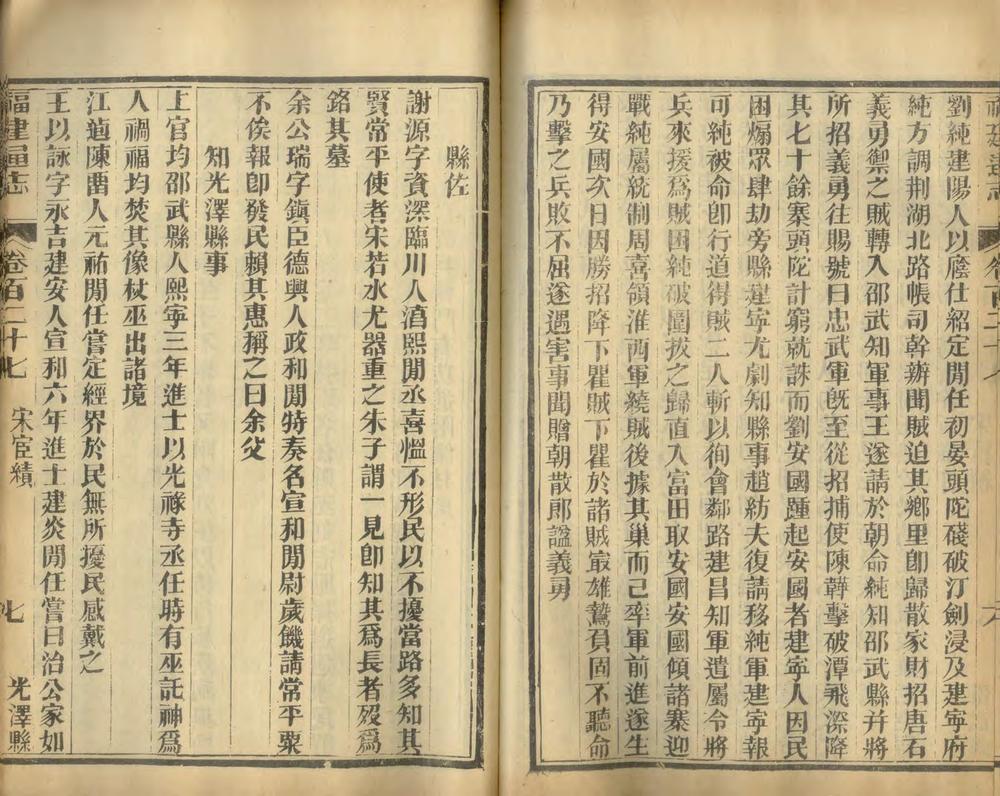 劉純建陽人以廕仕紹定閒任初晏頭陀殘破汀劍浸及建寧府
純方調荆湖北路帳司幹辦聞賊迫其鄉里卽歸散家財招唐石
義勇禦之賊轉入邵武知軍事王遂請於朝命純知邵武縣幷將
所招義勇往賜號曰忠武軍旣至從招捕使陳韡擊破潭飛漈降
其七十餘寨頭陀計窮就誅而劉安國踵起安國者建寧人因民
困煽眾肆劫旁縣建寧尤劇知縣事趙紡夫復請移純軍建寧報
可純被命卽行道得賊二人斬以徇會鄰路建昌知軍遣屬令將
兵來援爲賊困純破圍拔之歸直入富田取安國安國傾諸寨迎
戰純屬統制周喜領淮西軍繞賊後據其巢而己率軍前進遂生
得安國次日因勝招降下瞿賊下瞿於諸賊寂雄鷙負固不聽命
乃擊之兵敗不屈遂遇害事聞贈朝散郎諡義勇
縣佐
謝源字資深臨川人湻熙閒丞喜慍不形民以不擾當路多知其
賢常平使者宋若水尤器重之朱子謂一見卽知其爲長者歿爲
銘其墓
余公瑞字鎭臣德興人政和閒特奏名宣和閒尉歲饑請常平粟
不俟報卽發民賴其惠稱之曰余父
知光澤縣事
上官均邵武縣人熙寧三年進士以光祿寺丞任時有巫託神爲
人禍福均焚其像杖巫出諸境
江遹陳畱人元祐閒任嘗定經界於民無所擾民感戴之
王以詠字永吉建安人宣和六年進士建炎閒任嘗曰治公家如
福建通志 卷百二十七 宋宦績 七 光澤縣